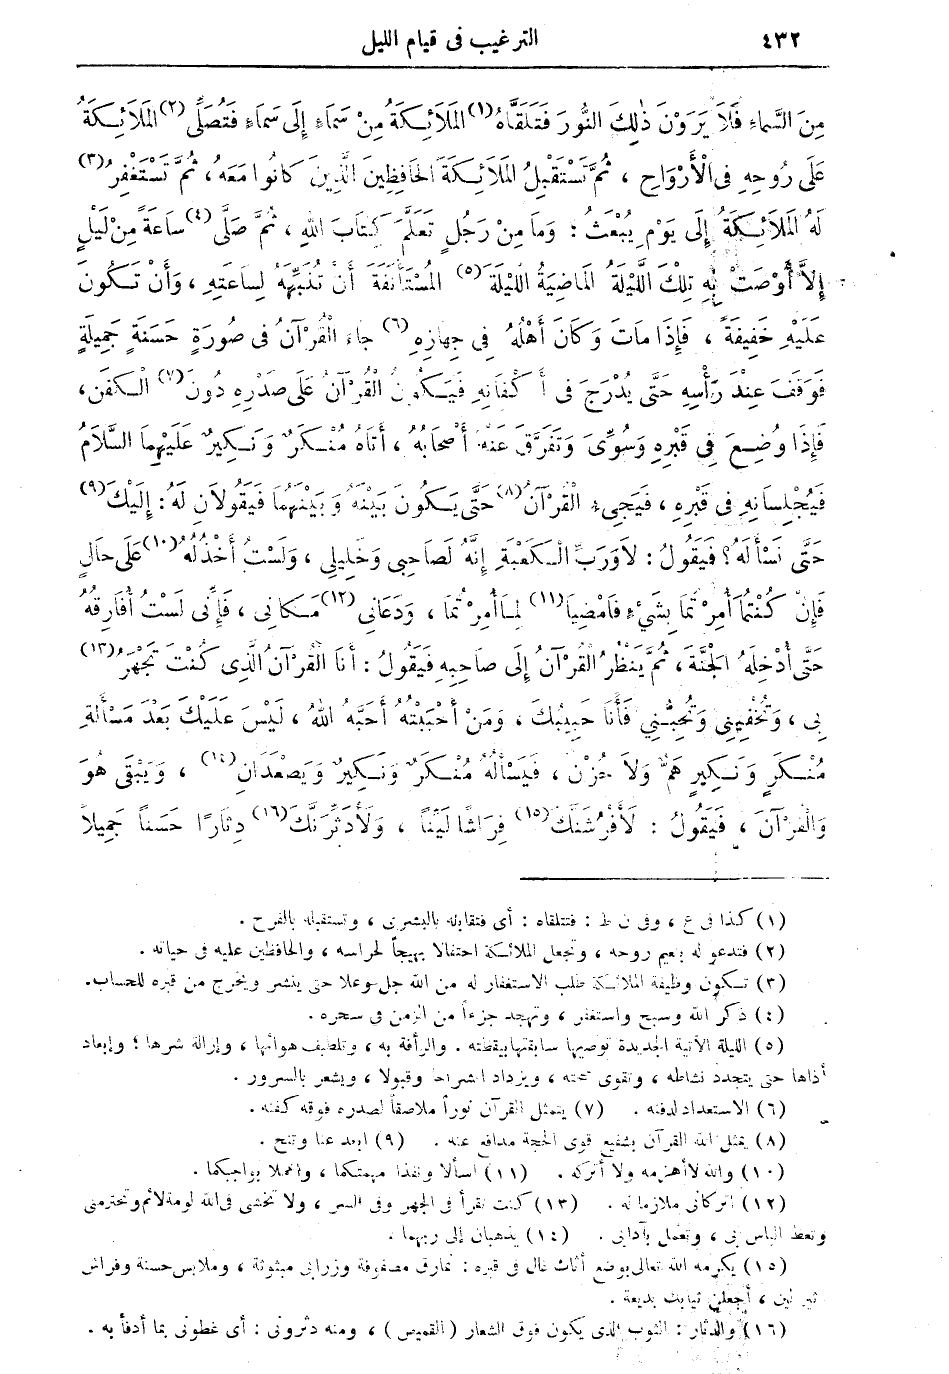 ٤٣٢ الترغيب فى قيام الليل
مِنَ السَّمَاءِ فَلَا يَرَوْنَ ذٰلِكَ النُّورَ فَتَلَقَّاهُ(١) الْمَلَائِكَةُ مِنْ سَمَاءٍ إِلَى سَمَاءٍ فَتُصَلِّى(٢) الْمَلَائِكَةُ
عَلَى رُوحِهِ فِى الْأَرْوَاحِ ، ثُمَّ تَسْتَقْبِلُ الْمَلَائِكَةَ الْحَافِظِينَ الَّذِينَ كَانُوا مَعَهُ ، ثُمَّ تَسْتَغْفِرُ(٣)
لَهُ الْمَلَائِكَةُ إِلَى يَوْمِ يُبْعَثُ : وَمَا مِنْ رَجُلٍ تَعَلَّمَ كِتَابَ اللهِ ، ثُمَّ صَلَّى(٤) سَاعَةً مِنْ لَيْلٍ
إِلاَّ أَوْصَتْ بِهِ تِلْكَ اللَّيْلَةُ الْمَاضِيَةُ اللَّيْلَةَ(٥) الْمُسْتَأْنَفَةَ أَنْ تُنَبِّهَهُ لِسَاعَتِهِ ، وَأَنْ تَكُونَ
عَلَيْهِ خَفِيفَةً ، فَإِذَا مَاتَ وَكَانَ أَهْلُهُ فِى جِهَازِهِ(٦) جَاءَ الْقُرْآنُ فِى صُورَةٍ حَسَنَةٍ جَمِيلَةٍ
فَوَقَفَ عِنْدَ رَأْسِهِ حَتَّى يُدْرَجَ فِى أَكْفَانِهِ فَيَكُونُ الْقُرْآنُ عَلَى صَدْرِهِ دُونَ(٧) الْكَفَنِ ،
فَإِذَا وُضِعَ فِى قَبْرِهِ وَسُوِّىَ وَتَفَرَّقَ عَنْهُ أَصْحَابُهُ ، أَتَاهُ مُنْكَرٌ وَنَكِيرٌ عَلَيْهِمَا السَّلَامُ
فَيُجْلِسَانِهِ فِى قَبْرِهِ ، فَيَجِىءُ الْقُرْآنُ(٨) حَتَّى يَكُونَ بَيْنَهُ وَبَيْنَهُمَا فَيَقُولَانِ لَهُ : إِلَيْكَ(٩)
حَتَّى نَسْأَلَهُ ؟ فَيَقُولُ : لَا وَرَبِّ الْكَعْبَةِ إِنَّهُ لَصَاحِبِى وَخَلِيلِى ، وَلَسْتُ أَخْذُلُهُ(١٠) عَلَى حَالٍ
فَإِنْ كُنْتُمَا أُمِرْتُمَا بِشَىْءٍ فَامْضِيَا(١١) لِمَا أُمِرْتُمَا ، وَدَعَانِى(١٢) مَكَانِى ، فَإِنِّى لَسْتُ أُفَارِقُهُ
حَتَّى أُدْخِلَهُ الْجَنَّةَ ، ثُمَّ يَنْظُرُ الْقُرْآنُ إِلَى صَاحِبِهِ فَيَقُولُ : أَنَا الْقُرْآنُ الَّذِى كُنْتَ تَجْهَرُ(١٣)
بِى ، وَتُخْفِينِى وَتُحِبُّنِى فَأَنَا حَبِيبُكَ ، وَمَنْ أَحْبَبْتُهُ أَحَبَّهُ اللهُ ، لَيْسَ عَلَيْكَ بَعْدَ مَسْأَلَةِ
مُنْكَرٍ وَنَكِيرٍ هَمٌّ وَلَا حُزْنٌ ، فَيَسْأَلُهُ مُنْكَرٌ وَنَكِيرٌ وَيَصْعَدَانِ(١٤) ، وَيَبْقَى هُوَ
وَالْقُرْآنُ ، فَيَقُولُ : لَأُفْرِشَنَّكَ(١٥) فِرَاشًا لَيِّنًا ، وَلَأُدَثِّرَنَّكَ(١٦) دِثَارًا حَسَنًا جَمِيلًا
(١) كذا فى ع ، وفى ن ط : فتتلقاه : أى فتقابله بالبشرى ، وتستقبله بالفرح .
(٢) فتدعو له بنعيم روحه ، وتجعل الملائكة احتفالا بهيجاً لحراسه ، والحافظين عليه فى حياته .
(٣) تكون وظيفة الملائكة طلب الاستغفار له من الله جل وعلا حتى ينشر ويخرج من قبره للحساب .
(٤) ذكر الله وسبح واستغفر ، وتهجد جزءاً من الزمن فى سحره .
(٥) الليلة الآتية الجديدة توصيها سابقتها بيقظته . والرأفة به ، وتلطيف هوائها ، وإزالة شرها ؛ وإبعاد
أذاها حتى يتجدد نشاطه ، وتقوى صحته ، ويزداد انشراحاً وقبولا ، ويشعر بالسرور .
(٦) الاستعداد لدفنه . (٧) يتمثل القرآن نوراً ملاصقاً لصدره فوقه كفنه .
(٨) يمثل الله القرآن بشفيع قوى الحجة مدافع عنه . (٩) ابعد عنا وتنح .
(١٠) والله لا أهزمه ولا أتركه . (١١) اسألا ونفذا مهمتكما ، واعملا بواجبكما .
(١٢) اتركانى ملازما له . (١٣) كنت تقرأ فى الجهر وفى السر ، ولا تخشى فى الله لومة لائم وتحترمنى
وتعظ الناس بى ، وتعمل بآدابى . (١٤) يذهبان إلى ربهما .
(١٥) يكرمه الله تعالى بوضع أثاث غال فى قبره : نمارق مصفوفة وزرابى مبثوثة ، وملابس حسنة وفراش
وثير لين ، أجعلن ثيابك بديعة .
(١٦) والدثار : الثوب الذى يكون فوق الشعار ( القميص ) ، ومنه دثرونى : أى غطونى بما أدفأ به .